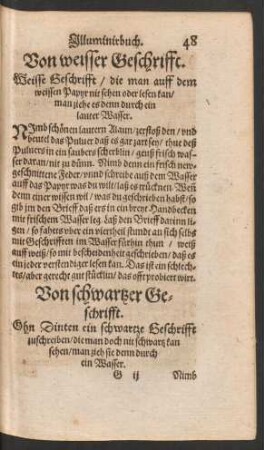 Illuminirbuch. 48
Von weisser Geschrifft.
Weisse Geschrifft / die man auff dem
weissen Papyr nit sehen oder lesen kan/
man ziehe es denn durch ein
lauter Wasser.
NJmb schönen lautern Alaun / zerstoß den / vnd
beutel das Puluer daß es gar zart sey / thu deß
Puluers in ein saubers scherblin / geuß frisch was-
ser daran / nit zu dünn. Nimb denn ein frisch new-
geschnittene Feder / vnnd schreibe auß dem Wasser
auff das Papyr was du wilt / laß es trücknen. Weñ
denn einer wissen wil / was du geschrieben habst / so
gib jm den Brieff daß ers in ein breyt Handbecken
mit frischem Wasser leg / laß den Brieff darinn li-
gen / so fahets vber ein viertheil stundt an sich selbs
mit Geschrifften im Wasser fürhin thun / weiß
auff weiß / so mit bescheidenheit geschrieben / daß es
ein jeder verstendiger lesen kan. Das ist ein schlech-
tes / aber gerecht gut stücklin / das offt probiert wirt.
Von schwartzer Ge-
schrifft.
Ohn Dinten ein schwartze Geschrifft
zuschreiben / die man doch nit schwartz kan
sehen / man zieh sie denn durch
ein Wasser.
G ij Nimb